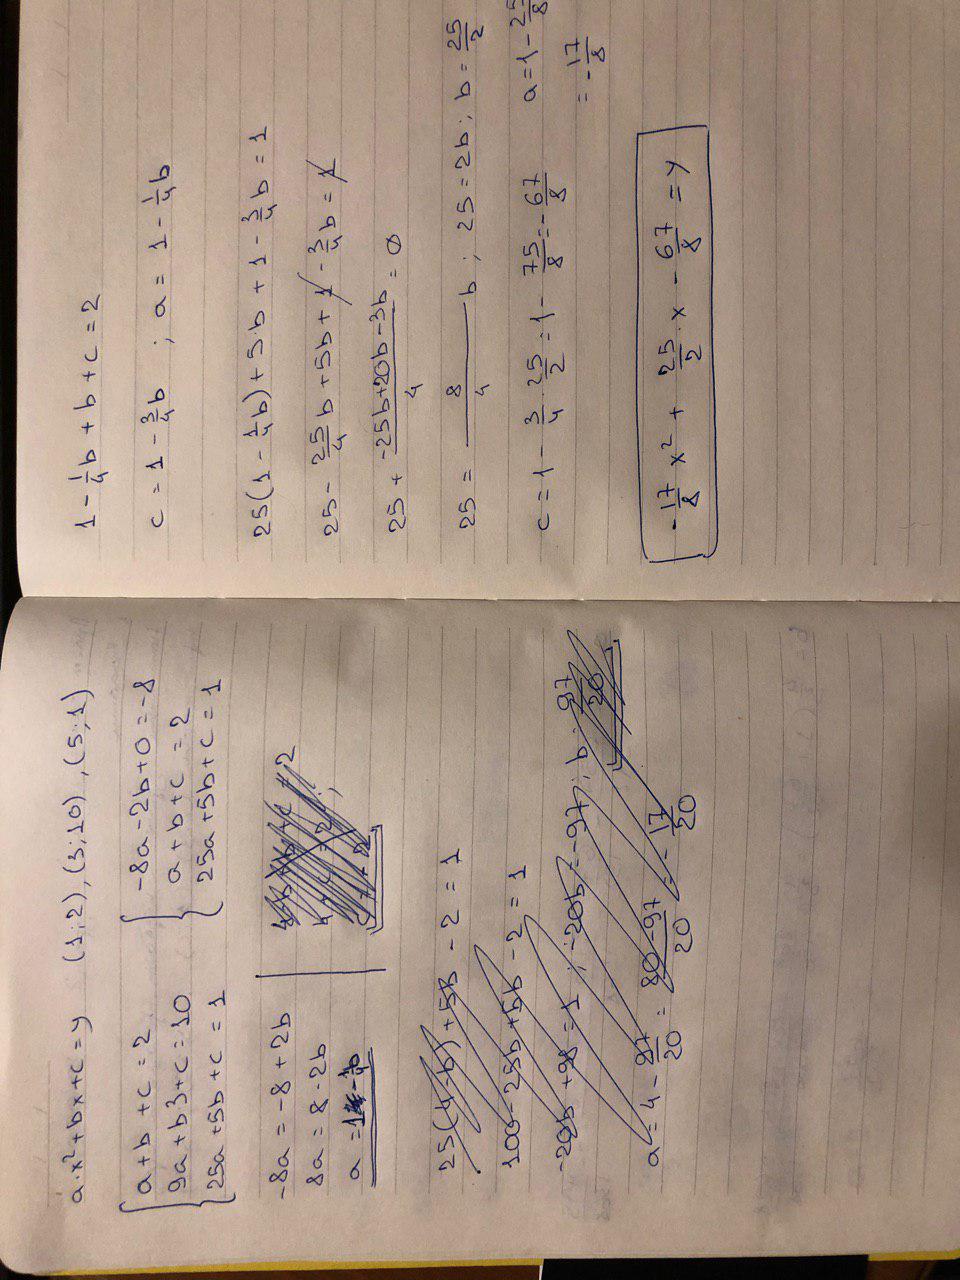 a·x²+bx+c=y (1;2),(3;10),(5;1)
{ a+b+c=2
9a+b3+c=10
25a+5b+c=1
{ -8a-2b+0=-8
a+b+c=2
25a+5b+c=1
-8a=-8+2b
8a=8-2b
a=1-¼b
25(4-b)+5b-2=1
100-25b+5b-2=1
-20b+98=1; -20b=-97; b=97/20
a=4-97/20=80-97/20=-17/20
1-¼b+b+c=2
c=1-¾b; a=1-¼b
25(1-¼b)+5·b+1-¾b=1
25-25/4b+5b+1-¾b=1
25+-25b+20b-3b/4=0
25=8/4b; 25=2b; b=25/2
c=1-3/4·25/2=1-75/8=-67/8 a=1-25/8
=-17/8
-17/8x²+25/2·x-67/8=y